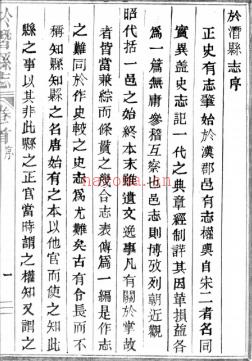 於潛縣志序
正史有志肇始於漢郡邑有志權輿自宋二者名同
實異蓋史志記一代之典章經制詳其因革損益各
為一篇無庸參稽互察也邑志則博攷列朝近觀
昭代括一邑之始終本末雖遺文逸事凡有關於掌故
者皆當兼綜而條貫之幾合志表傳爲一編是作志
之難同於作史較之史志爲尤難矣古有令長而不
稱知縣知縣之名唐始有之本以他官而使之知此
縣之事以其非此縣之正官當時謂之權知又謂之
於潛縣志
卷首
序
一